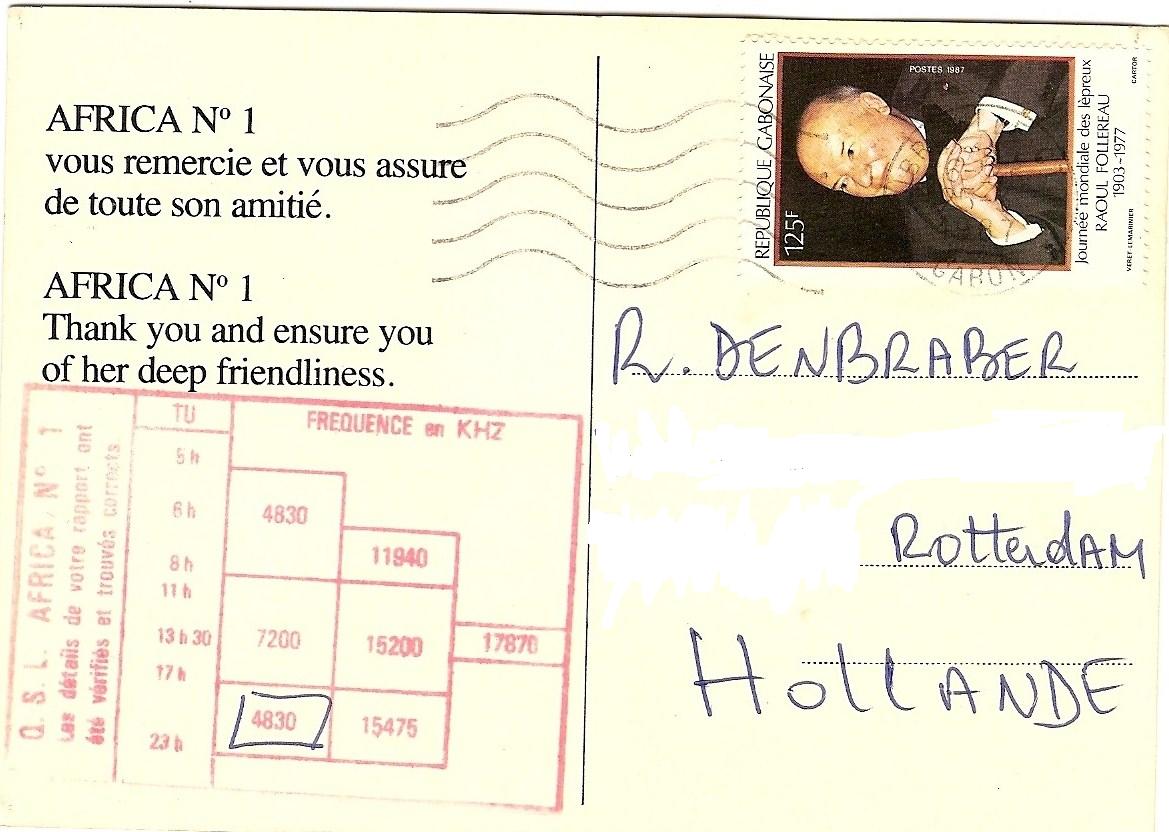 AFRICA Nº 1
vous remercie et vous assure
de toute son amitié.
AFRICA Nº 1
Thank you and ensure you
of her deep friendliness.
Q. S. L. AFRICA N° 1
Les détails de votre rapport ont
été vérifiés et trouvés corrects
TU
FREQUENCE en KHZ
5 h
6 h
4830
8 h
11940
11 h
13 h 30
7200
15200
17870
17 h
4830
15475
23 h
REPUBLIQUE GABONAISE
125F
POSTES 1987
Journée mondiale des lèpreux
RAOUL FOLLEREAU
1903-1977
VERET-LEMARINIER
CARTOR
GABON
R. DENBRABER
Rotterdam
HollANDE